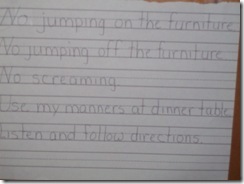 No jumping on the furniture
No jumping off the furniture
No screaming
Use my manners at dinner table
Listen and follow directions.